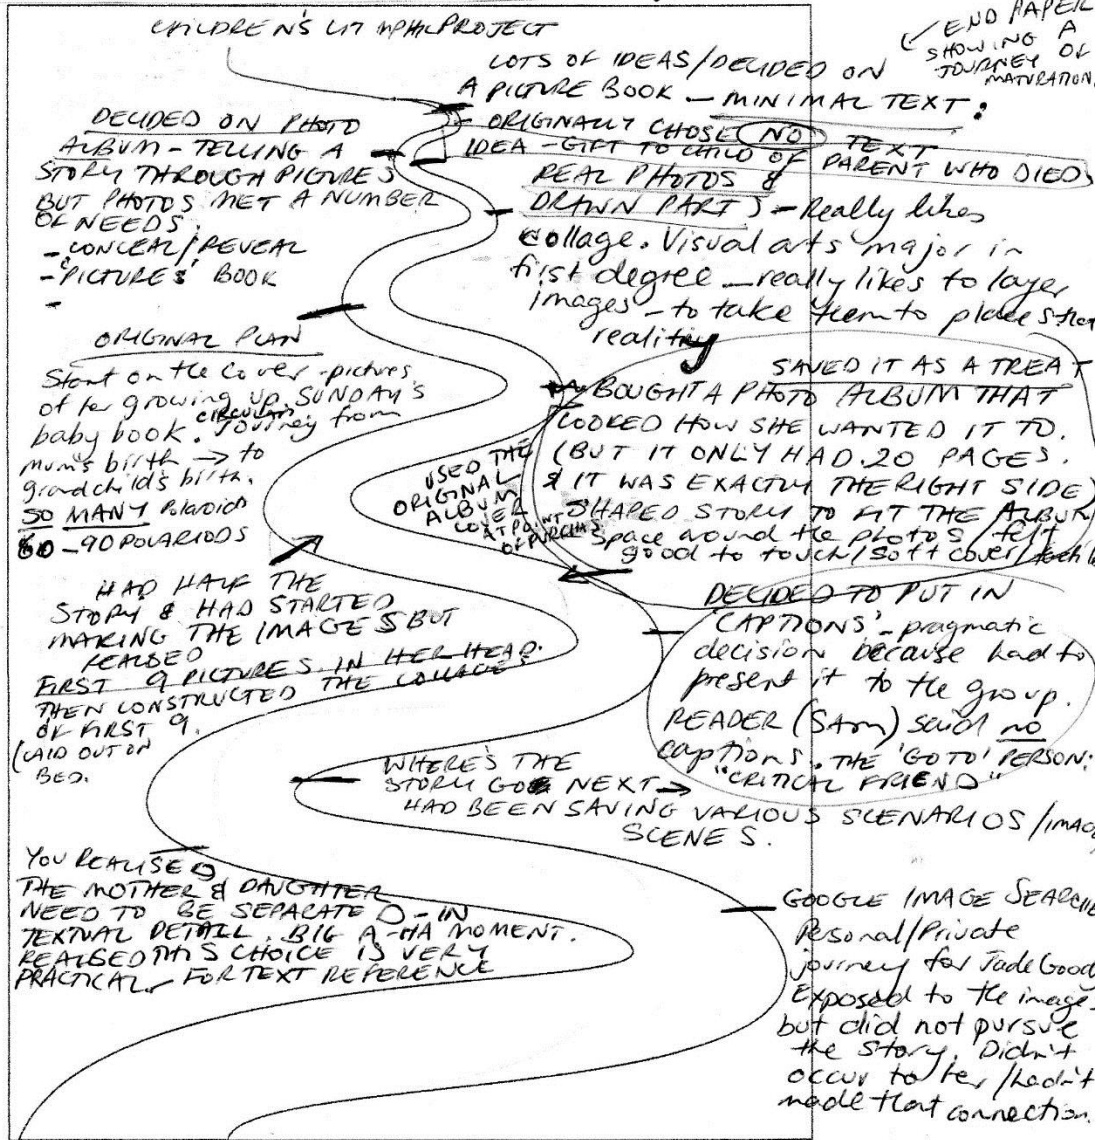 CHILDREN'S LIT MPHIL PROJECT
END PAPER
SHOWING A
JOURNEY OF
MATURATION.
LOTS OF IDEAS/DECIDED ON
A PICTURE BOOK – MINIMAL TEXT:
- ORIGINALLY CHOSE NO TEXT
IDEA - GIFT TO CHILD OF PARENT WHO DIED
REAL PHOTOS &
DRAWN PARTS – Really likes
collage. Visual arts major in
first degree – really likes to layer
images – to take them to places
reality
DECIDED ON PHOTO
ALBUM - TELLING A
STORY THROUGH PICTURES
BUT PHOTOS MET A NUMBER
OF NEEDS.
- CONCEAL/REVEAL
- 'PICTURES' BOOK
-
ORIGINAL PLAN
Start on the cover - pictures
of her growing up. SUNDAY'S
baby book. CIRCULAR Journey from
mum's birth → to
grandchild's birth.
SO MANY Polaroids
60 - 90 POLARIODS
SAVED IT AS A TREAT
BOUGHT A PHOTO ALBUM THAT
LOOKED HOW SHE WANTED IT TO.
(BUT IT ONLY HAD 20 PAGES.
& IT WAS EXACTLY THE RIGHT SIDE)
SHAPED STORY TO FIT THE ALBUM
Space around the photos / felt
good to touch/soft cover/
USED THE
ORIGINAL
ALBUM
COVER
AT POINT
OF PURCHAS
HAD HALF THE
STORY & HAD STARTED
MAKING THE IMAGES BUT
REALISED
FIRST 9 PICTURES IN HER HEAD.
THEN CONSTRUCTED THE COLLAGE
OF FIRST 9.
(LAID OUT ON
BED.
DECIDED TO PUT IN
'CAPTIONS' - pragmatic
decision because had to
present it to the group.
READER (SAM) said no
captions. THE 'GO TO' PERSON:
"CRITICAL FRIEND"
WHERE'S THE
STORY GO NEXT →
HAD BEEN SAVING VARIOUS SCENARIOS /IMAG
SCENES.
YOU REALISED
THE MOTHER & DAUGHTER
NEED TO BE SEPARATED - IN
TEXTUAL DETAIL. BIG A-HA MOMENT.
REALISED THIS CHOICE IS VERY
PRACTICAL - FOR TEXT REFERENCE
GOOGLE IMAGE SEARCHE
Personal/Private
journey for Jade Good
Exposed to the image
but did not pursue
the story. Didn't
occur to her /hadn't
made that connection.